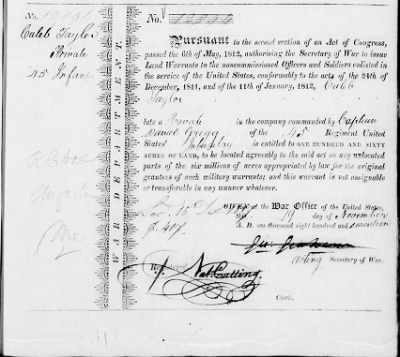 No.
Caleb Taylor
Private
45 Infan
WAR DEPARTMENT.
No.
Pursuant to the second section of an Act of Congress,
passed the 6th of May, 1812, authorising the Secretary of War to issue
Land Warrants to the noncommissioned Officers and Soldiers enlisted in
the service of the United States, conformably to the acts of the 24th of
December, 1811, and of the 11th of January, 1812, Caleb
Taylor
late a Private in the company commanded by Captain
Gregg of the 45 Regiment United
States' Infantry is entitled to ONE HUNDRED AND SIXTY
ACRES OF LAND, to be located agreeably to the said act on any unlocated
parts of the six millions of acres appropriated by law for the original
grantees of such military warrants; and this warrant is not assignable
or transferable in any manner whatever.
GIVEN at the War Office of the United States,
this 19 day of November
A. D. one thousand eight hundred and seventeen
acting Secretary of War.
Registered
Nat Cutting.
Clerk.
Me